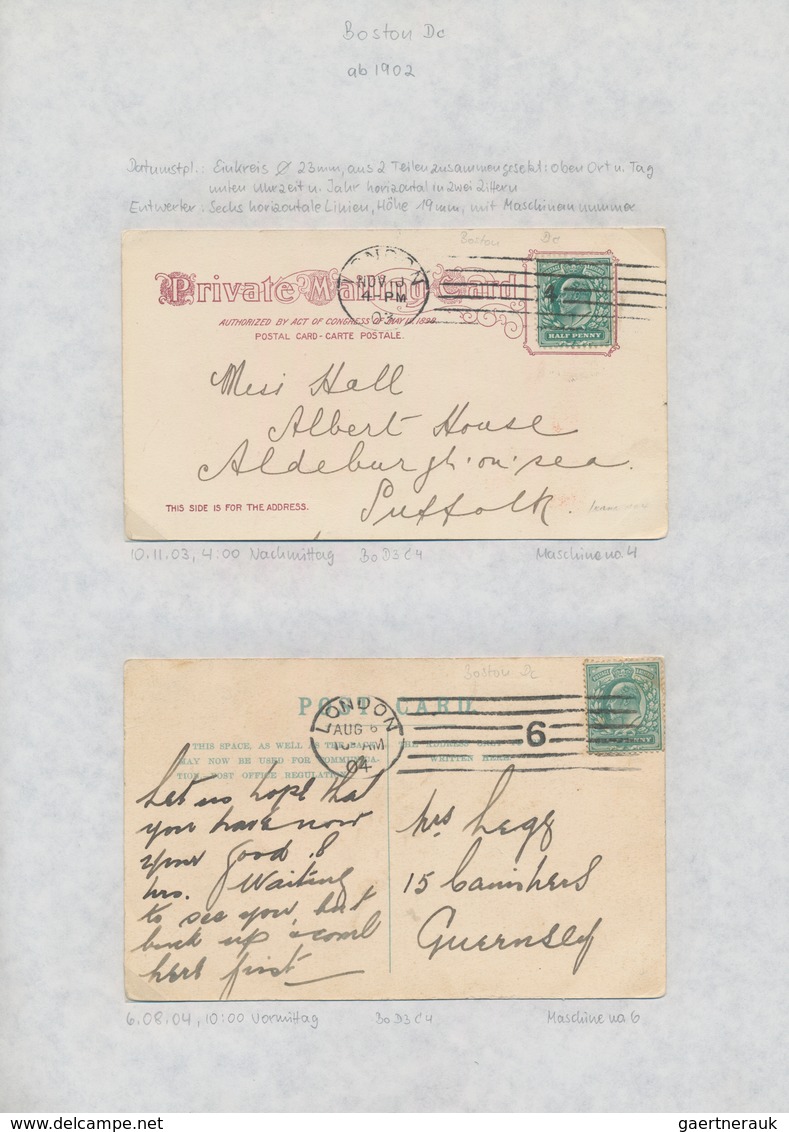 Boston Dc
ab 1902
Datumstpl.: Einkreis Ø 23mm, aus 2 Teilen zusammengesetzt: oben Ort u. Tag
unten Uhrzeit u. Jahr horizontal in zwei Ziffern
Entwerter: Sechs horizontale Linien, Höhe 19mm, mit Maschinennummer
Boston Dc
LONDON
NOV 10
4 PM
03
4
Private Mailing Card
HALF PENNY
AUTHORIZED BY ACT OF CONGRESS OF MAY 19, 1898.
POSTAL CARD - CARTE POSTALE.
Miss Hall
Albert House
Aldeburgh·on·sea.
Suffolk.
THIS SIDE IS FOR THE ADDRESS.
10.11.03, 4:00 Nachmittag BoD3C4 Maschine no. 4
Boston Dc
POST CARD
LONDON
AUG 6
10 AM
04
6
THIS SPACE, AS WELL AS THE BACK, THE ADDRESS ONLY
MAY NOW BE USED FOR COMMUNICA- WRITTEN HERE.
TION. POST OFFICE REGULATION
Let us hope that
you have now
your good 8
hrs. Waiting
to see you, but
buck up & come
here first
Mrs Legg
Guernsey
6.08.04, 10:00 Vormittag BoD3C4 Maschine no 6
www.delcampe.net
gaertnerauk